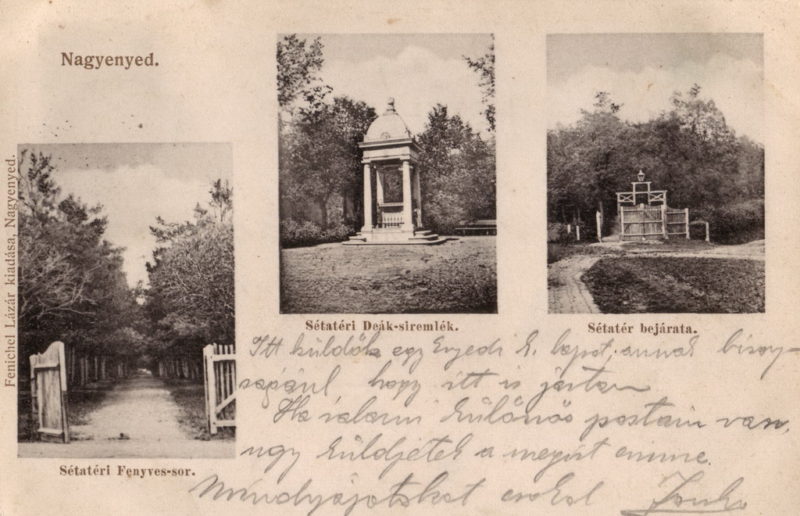 Nagyenyed.
Fenichel Lázár kiadása, Nagyenyed.
Sétatéri Deák-siremlék.
Sétatér bejárata.
Sétatéri Fenyves-sor.
Itt küldök egy Enyedi k. lapot, annak bizony-
ságául, hogy itt is jártam
Ha valami különös postám van,
ugy küldjétek a megírt címre.
Mindnyájatokat csokol